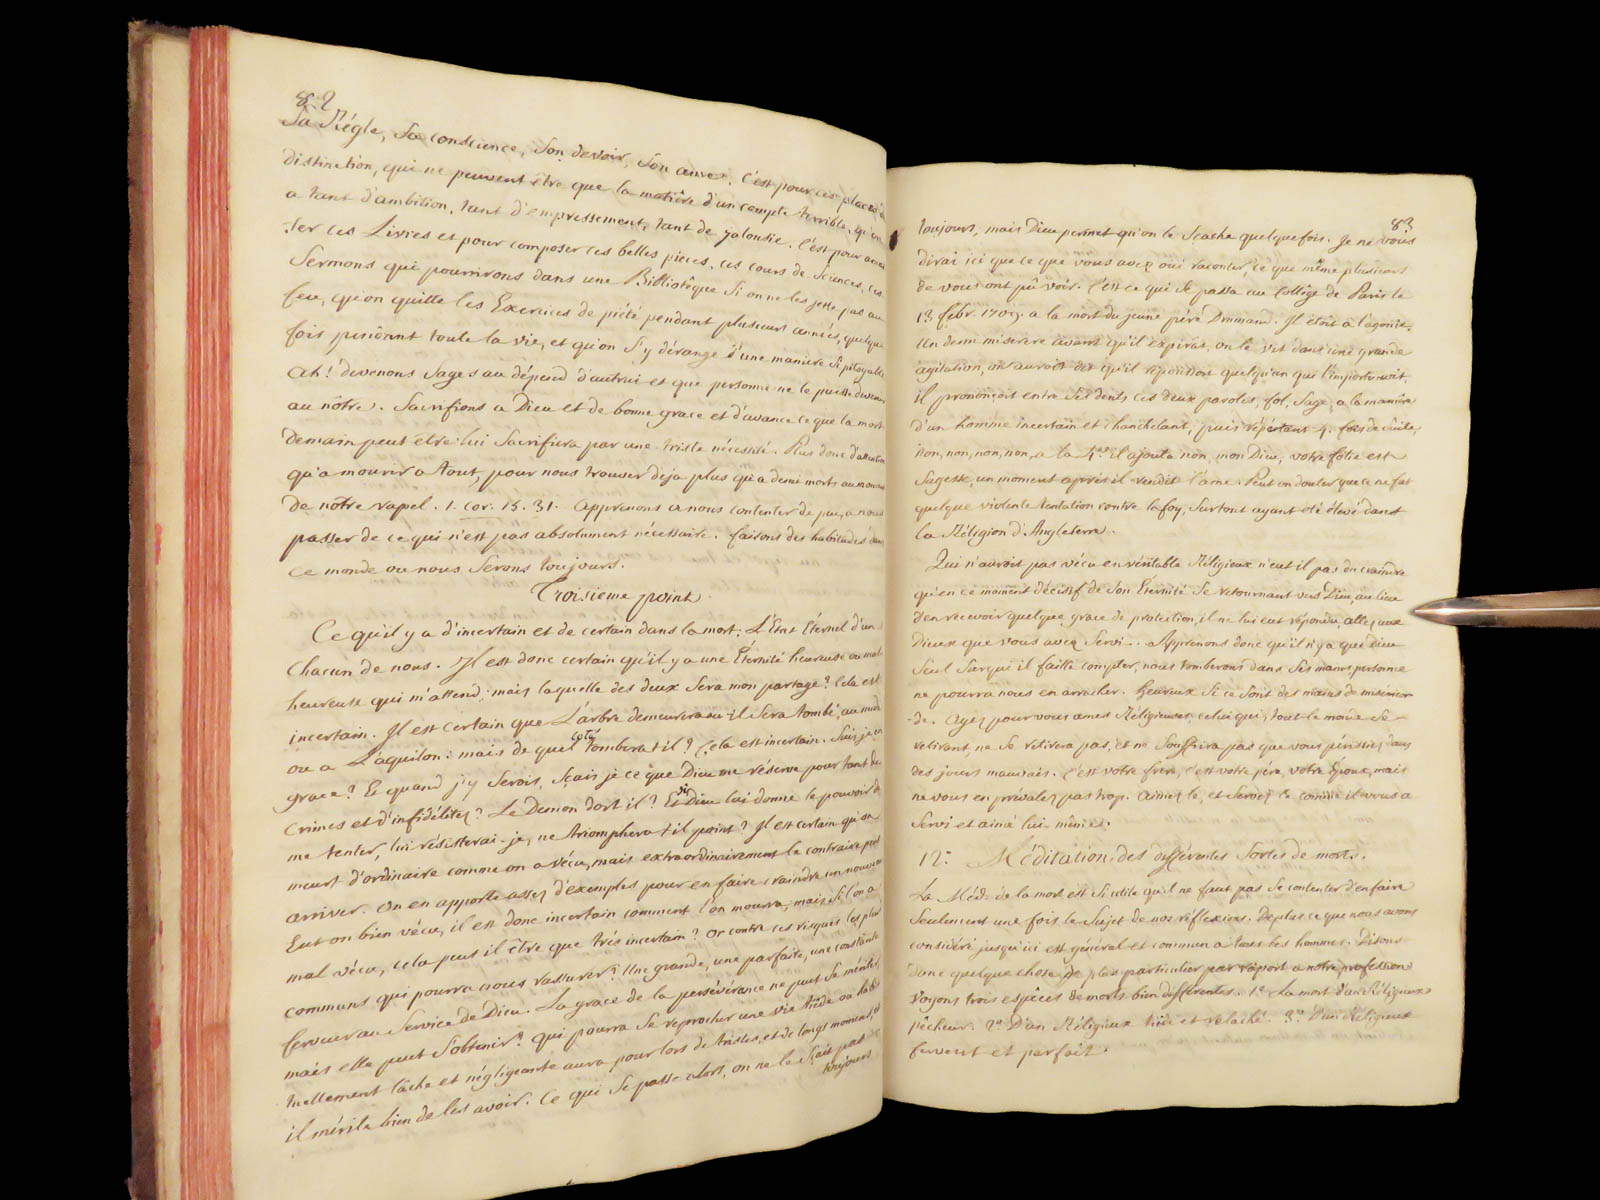 82
Sa Régle, Sa conscience, Son devoir, Son ame. C'est pour ces places de
distinction, qui ne peuvent être que la matière d'un compte terrible, qu'on
a tant d'ambition, tant d'empressement, tant de jalousie. C'est pour
-ter ces Livres et pour composer ces belles pièces, ces cours de Sciences, ces
Sermons qui pourrirons dans une Bibliotêque Si on ne les jette pas au
feu, qu'on quitte les Exercices de piété pendant plusieurs années, quelque
fois pendant toute la vie, et qu'on S'y dérange d'une maniere Si pitoyable
ah! devenons Sages au dépend d'autrui et que personne ne le puisse devenir
au nôtre. Sacrifions a Dieu et de bonne grace et d'avance ce que la mort
demain peut etre lui Sacrifiera par une triste nécessité. Plus donc d'attention
qu'a mourir a tout, pour nous trouver deja plus qu'a demi morts au moment
de nôtre rapel. 1. cor. 15. 31. Apprenons a nous contenter de peu, a nous
passer de ce qui n'est pas absolument nécessaire. faisons des habitudes dans
ce monde ou nous Serons toujours.
Troisieme point.
Ce qu'il y a d'incertain et de certain dans la mort; L'Etat Eternel d'un
chacun de nous. Il est donc certain qu'il y a une Éternité heureuse ou mal-
heureuse qui m'attend; mais laquelle des deux Sera mon partage? Cela est
incertain. Il est certain que L'arbre demeurera ou il Sera tombé, au midi
ou a L'aquilon: mais de quel coté tombera t-il? Cela est incertain. Suis je en
grace? Et quand j'y Serois, Sçais je ce que Dieu me réserve pour tant de
crimes et d'infidélitez? Le Demon dort il? Et Si Dieu lui donne le pouvoir de
me tenter, lui résisterai-je, ne triomphera t-il point? Il est certain qu'on
meurt d'ordinaire comme on a vécu, mais extraordinairement le contraire peut
arriver. On en apporte assez d'exemples pour en faire craindre un nouveau
Eut on bien vécu, il est donc incertain comment l'on mourra, mais Si l'on a
mal vécu, cela peut il être que trés incertain? Or contre ces risques les plus
communs qui pourra nous rassurer? Une grande, une parfaite, une constante
ferveur au Service de Dieu. La grace de la persévérance ne peut Se mériter,
mais elle peut S'obtenir? Qui pourra Se reprocher une vie tiède ou habi-
tuellement lâche et négligeante aura pour lors de tristes, et de longs momens, et
il mérite bien de les avoir. Ce qui Se passe alors, on ne le Sçait pas
toujours
83
toujours, mais Dieu permet qu'on le Scache quelquefois. Je ne vous
dirai ici que ce que vous avez oui raconter, ce que même plusieurs
de vous ont pû voir. C'est ce qui Se passa au Collége de Paris le
13 febr. 1709. a la mort du jeune péré Drumand. Il étoit a l'agonie.
Un demi miserere avant qu'il expirât, on le vit dans une grande
agitation, on auroit dit qu'il repoussoit quelqu'un qui l'importunoit,
il prononçoit entre Ses dents ces deux paroles, fol, Sage, a la maniére
d'un homme incertain et chancelant, puis répétant 4. fois de Suite,
Non, non, non, non, a la 4e. il ajouta non, mon Dieu, votre folie est
Sagesse, un moment aprés il rendit l'ame. Peut on douter que ce ne fut
quelque violente tentation contre la foy, Surtout ayant été élevé dans
la Réligion d'Angleterre.
Qui n'auroit pas vécu en véritable Réligieux n'eut il pas du craindre
qu'en ce moment décisif de Son Eternité Se retournant vers Dieu, au lieu
d'en recevoir quelque grace de protection, il ne lui eut répondu, allez aux
Dieux que vous avez Servi... Apprenons donc qu'il n'y a que Dieu
Seul Sur qui il faille compter, nous tomberons dans Ses mains personne
ne pourra nous en arracher. heureux Si ce Sont des mains de miséricor-
-de. Ayez pour vous ames Réligieuses, celui qui, tout le monde Se
retirant, ne Se retirera pas, et ne Souffrira pas que vous périssiez dans
des jours mauvais. C'est votre frere, c'est votre pére, votre Epoux, mais
ne vous en prévalez pas trop. aimez le, et Servez le comme il vous a
Servi et aimé lui-même.
12.e Méditation, des différentes Sortes de morts.
La Méd. de la mort est Si utile qu'il ne faut pas Se contenter d'en faire
Seulement une fois le Sujet de nos réflexions. De plus ce que nous avons
considéré jusqu'ici est général et commun a tous les hommes. Disons
donc quelque chose de plus particulier par raport a notre profession
Voyons trois espéces de morts bien différentes. 1°. La mort d'un Réligieux
pécheur. 2°. D'un Réligieux tiéde et relaché. 3°. D'un Réligieux
fervent et parfait.